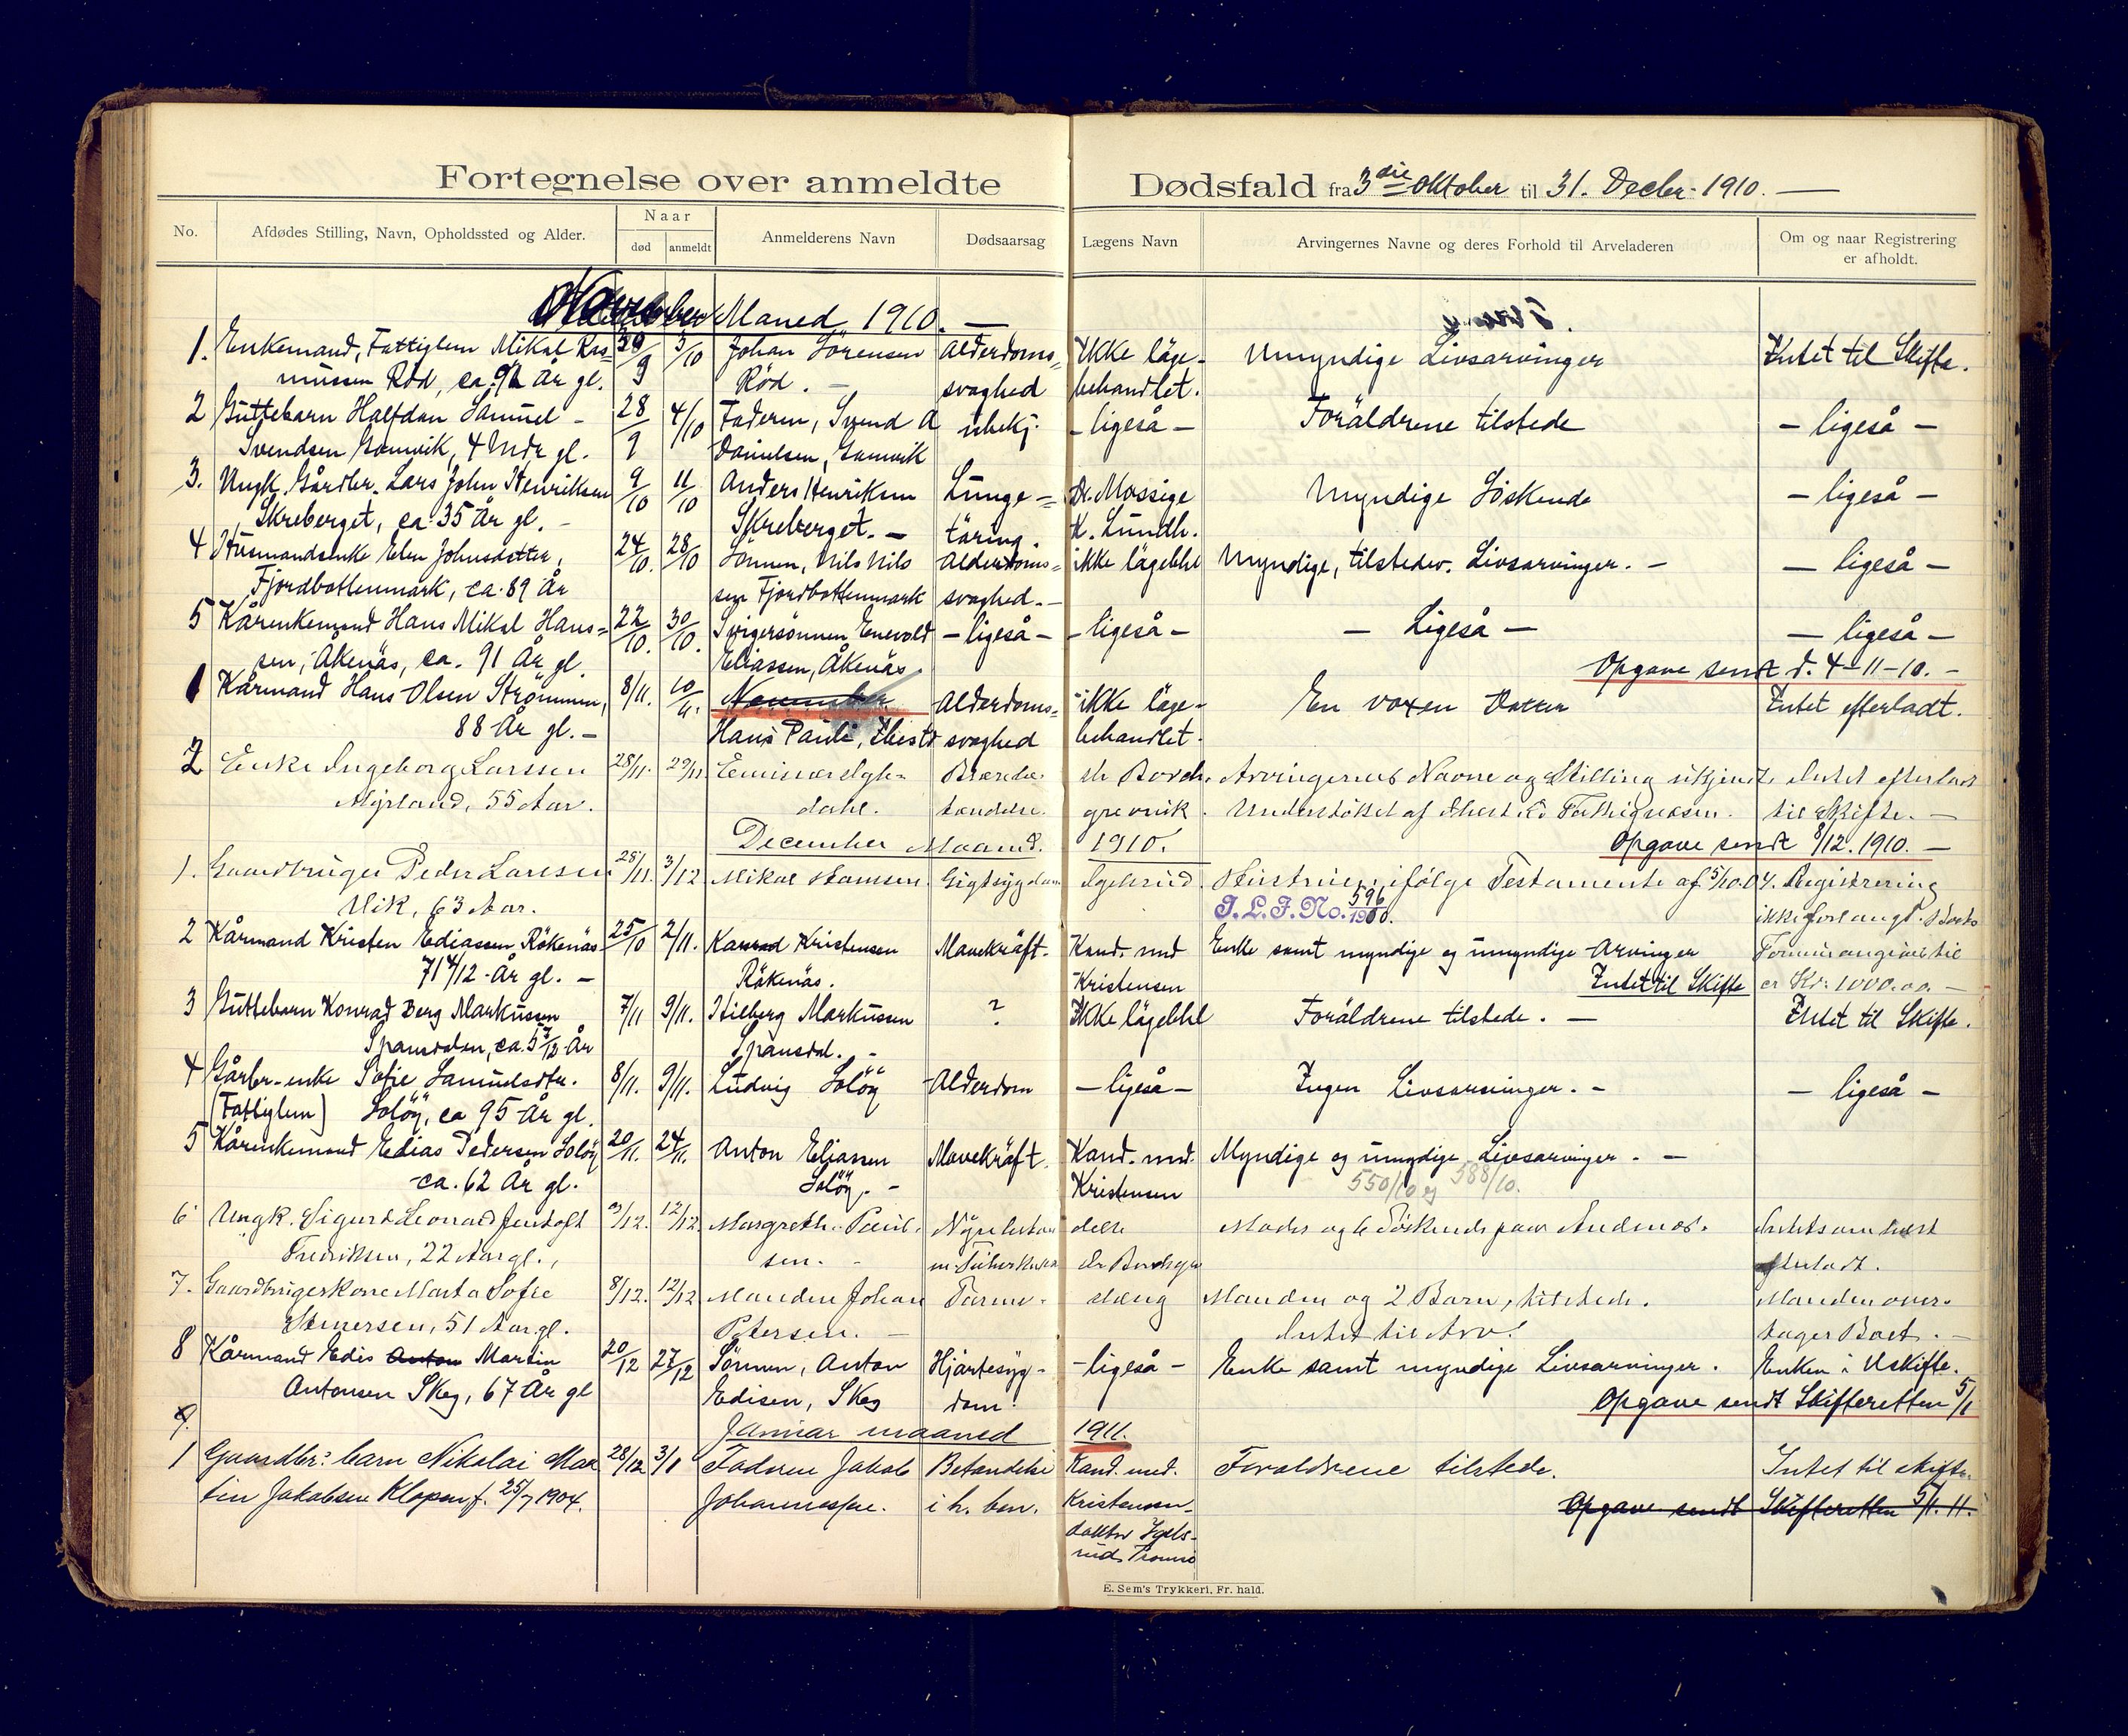 Fortegnelse over anmeldte Dødsfald fra 3die Oktober til 31. Decbr. 1910. —
No. Afdødes Stilling, Navn, Opholdssted og Alder. Naar død anmeldt Anmelderens Navn Dødsaarsag Lægens Navn Arvingernes Navne og deres Forhold til Arveladeren Om og naar Registrering er afholdt.
Maned 1910. —
1. Enkemand, Fattiglem Mikal Ras= 3/10 Johan Sörensen Alderdoms= Ikke läge- Umyndige Livsarvinger Intet til Skifte.
mussen Röd, ca. 91 År gl. 9 Röd. — svaghed behandlet.
2 Guttebarn Halfdan Samuel - 28/9 4/10 Faderen, Svend A ubekj. - ligeså - Foräldrene tilstede - ligeså -
Svendsen Gamvik, 4 Mdr gl. Danielsen, Gamvik
3. Ungk. Gårdbr. Lars John Henriksen 9/10 11/10 Anders Henriksen Lunge= Dr. Mossige Myndige Söskende - ligeså -
Skreberget, ca 35 År gl. - Skreberget. - täring. K. Lundh.
4 Husmandsenke Elen Johnsdatter, 24/10. 28/10 Sönnen, Nils Nils Alderdoms= ikke lägebhl Myndige, tilstedev. Livsarvinger. - - ligeså -
Fjordbottenmark, ca. 89 År sen Fjordbottenmark svaghed. -
5 Kårenkemand Hans Mikal Hans= 22/10. 30/10. Svigersönnen Enevold - ligeså - - ligeså - - Ligeså - - ligeså -
sen, Åkenäs, ca. 91 År gl. Eliassen, Åkenäs
Opgave sendt d. 4-11-10. -
1 Kårmand Hans Olsen Strömmen, 8/11. 10/11. November Alderdoms= ikke läge- En voxen Datter Intet efterladt.
88 År gl. - Hans Pauli, Ibestd svaghed behandlet.
2 Enke Ingeborg Larssen 28/11. 29/11 dr Borch- Arvingernes Navne og Stilling ukjendt. Intet efterladt
Myrland, 55 Aar. dahl. grevink. Understøttet af Ibestad Fattigvæsen. til Skifte. -
December Maaned. 1910. Opgave sendt 8/12. 1910. -
1. Gaardbruger Peder Larssen 28/11. 3/12 Mikal Hansen. Gigtsygdom Igelsrud. Hustruen, ifølge Testamente af 5/10.04. Registrering
Vik, 63 Aar. S. L. J. No. 596/1910. ikke forlangt. Boets
2 Kårmand Kristen Ediassen Rökenäs 25/10 2/11. Konrad Kristensen Mavekräft. Kand. med Enke samt myndige og umyndige Arvinger Formue angives til
71 4/12 År gl. - Räkenäs. Kristensen Intet til Skifte er Kr. 1000.00. -
3 Guttebarn Konrad Berg Markussen 7/11 9/11. Hilberg Markussen ? Ikke lägebhl Foräldrene tilstede. - Intet til Skifte.
Spansdalen, ca. 5 7/12 År Spansdal. -
4 Gårbr-enke Sofie Samuelsdtr. 8/11. 9/11. Ludvig Solöy Alderdom - ligeså - Ingen Livsarvinger. - - ligeså -
(Fattiglem) Solöy, ca 95 År gl.
5 Kårenkemand Edias Pedersen Solöy 20/11. 24/11. Anton Eliassen Mavekräft. Kand. med. Myndige og umydige Livsarvinger. -
ca. 62 År gl. Solöy. - Kristensen 550/10 og 588/10.
6 Ungk. Sigurd Leonard Jentoft 12/12 Margrethe Paul- Nyrebetæn delse Moder og 6 Söskende paa Andnæs. Intet som helst
Fredriksen, 22 Aar gl., sen. - efterladt.
7. Gaardbrugerkone Marta Sofie 8/12. 12/12 Manden Johan Tarm- slæng Manden og 2 Barn, tilstede. Manden over-
51 Aar gl. Petersen. - Intet til Arv. tager Boet. -
8 Kårmand Edis Anton Martin 20/12 27/12 Sönnen, Anton Hjärtesyg- - ligeså - Enke samt myndige Livsarvinger. Enken i Uskifte.
Antonsen Skog, 67 År gl Edisen, Skog dom. Opgave sendt Skifteretten 5/1
9. Januar maaned 1911.
1 Gaardbr: barn Nikolai Mar 28/12 3/1 Faderen Jakob Betændelse Kand. med. Forældrene tilstede. Intet til skifte.
tin Jakobsen Kloppen f. 25/7 1904. Johannessen. i h. ben. Kristensen - Opgave sendt Skifteretten 5/1. 11.
doktor Igels-
rud, Tromsø
E. Sem's Trykkeri, Fr. hald.